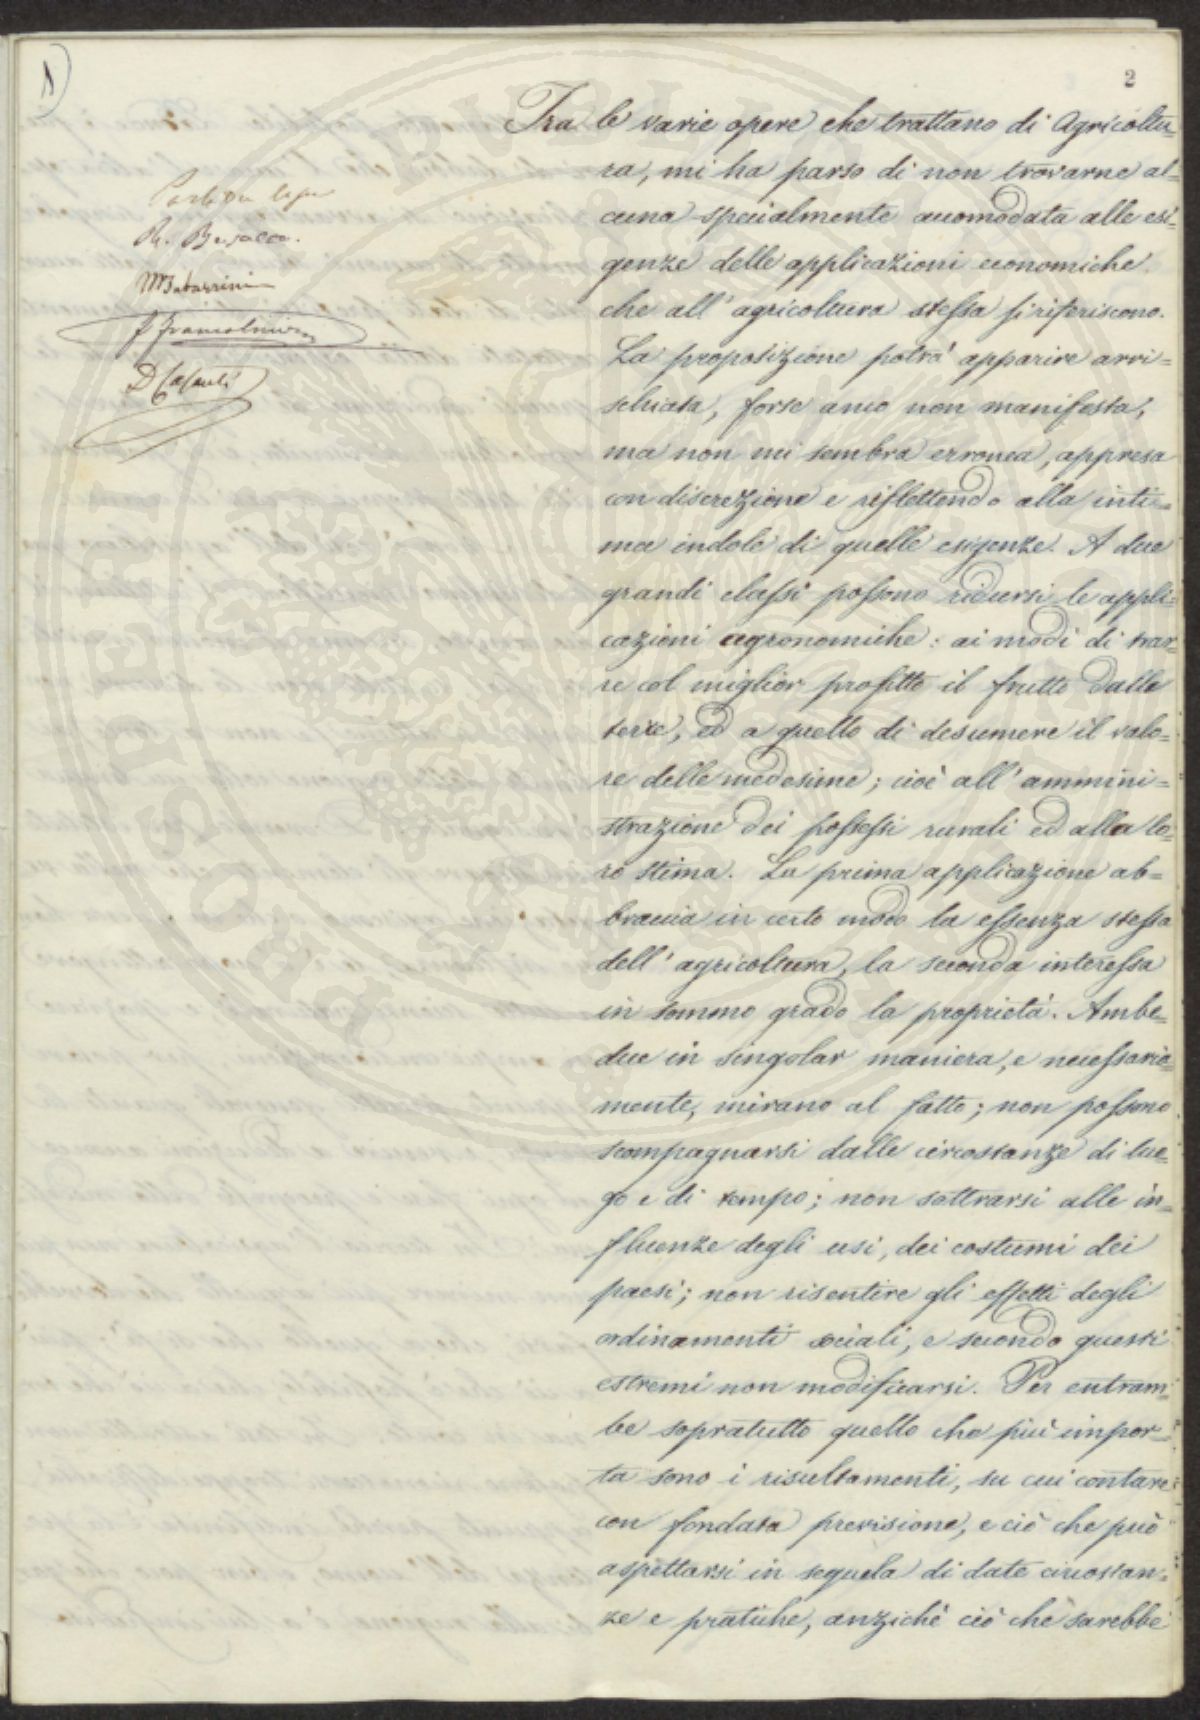 1)
2
R. Busacca.
MTabarrini
Tra le varie opere che trattano di Agricoltu-
ra, mi ha parso di non trovarne al-
cuna specialmente accomodata alle esi-
genze delle applicazioni economiche
che all' agricoltura stessa si riferiscono.
La proposizione potrà apparire arri-
schiata, forse anco non manifesta,
ma non mi sembra erronea, appresa
con discrezione e riflettendo alla inti-
ma indole di quelle esigenze. A due
grandi classi possono ridursi le appli-
cazioni agronomiche: ai modi di trar-
re col miglior profitto il frutto dalle
terre, ed a quello di desumere il valo-
re delle medesime; cioè all' ammini-
strazione dei possessi rurali ed alla lo-
ro stima. La prima applicazione ab-
braccia in certo modo la essenza stessa
dell' agricoltura, la seconda interessa
in sommo grado la proprietà. Ambe-
due in singolar maniera, e necessaria-
mente, mirano al fatto; non possono
scompagnarsi dalle circostanze di luo-
go e di tempo; non sottrarsi alle in-
fluenze degli usi, dei costumi dei
paesi; non risentire gli effetti degli
ordinamenti sociali, e secondo questi
estremi non modificarsi. Per entram-
be sopratutto quello che più impor-
ta sono i risultamenti, su cui contare
con fondata previsione, e ciò che può
aspettarsi in seguela di date circostan-
ze e pratiche, anzichè ciò che sarebbe
PROPRIETÀ PUBLICA